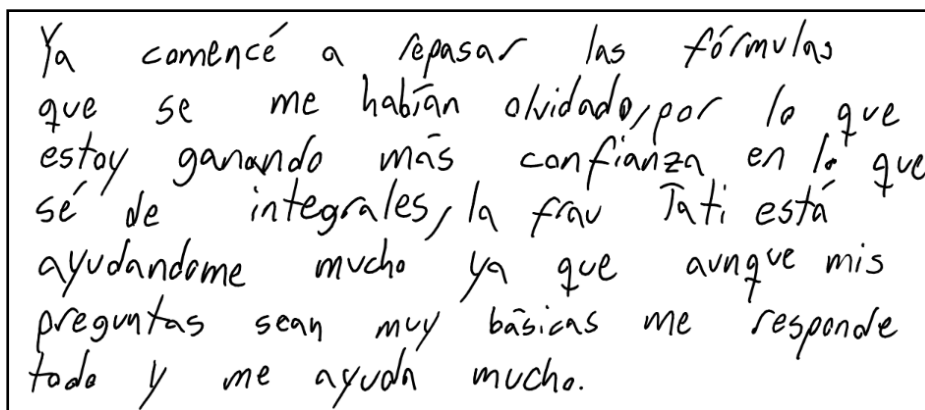 Ya comencé a repasar las fórmulas
que se me habían olvidado, por lo que
estoy ganando más confianza en lo que
sé de integrales, la frau Tati está
ayudandome mucho ya que aunque mis
preguntas sean muy básicas me responde
todo y me ayuda mucho.